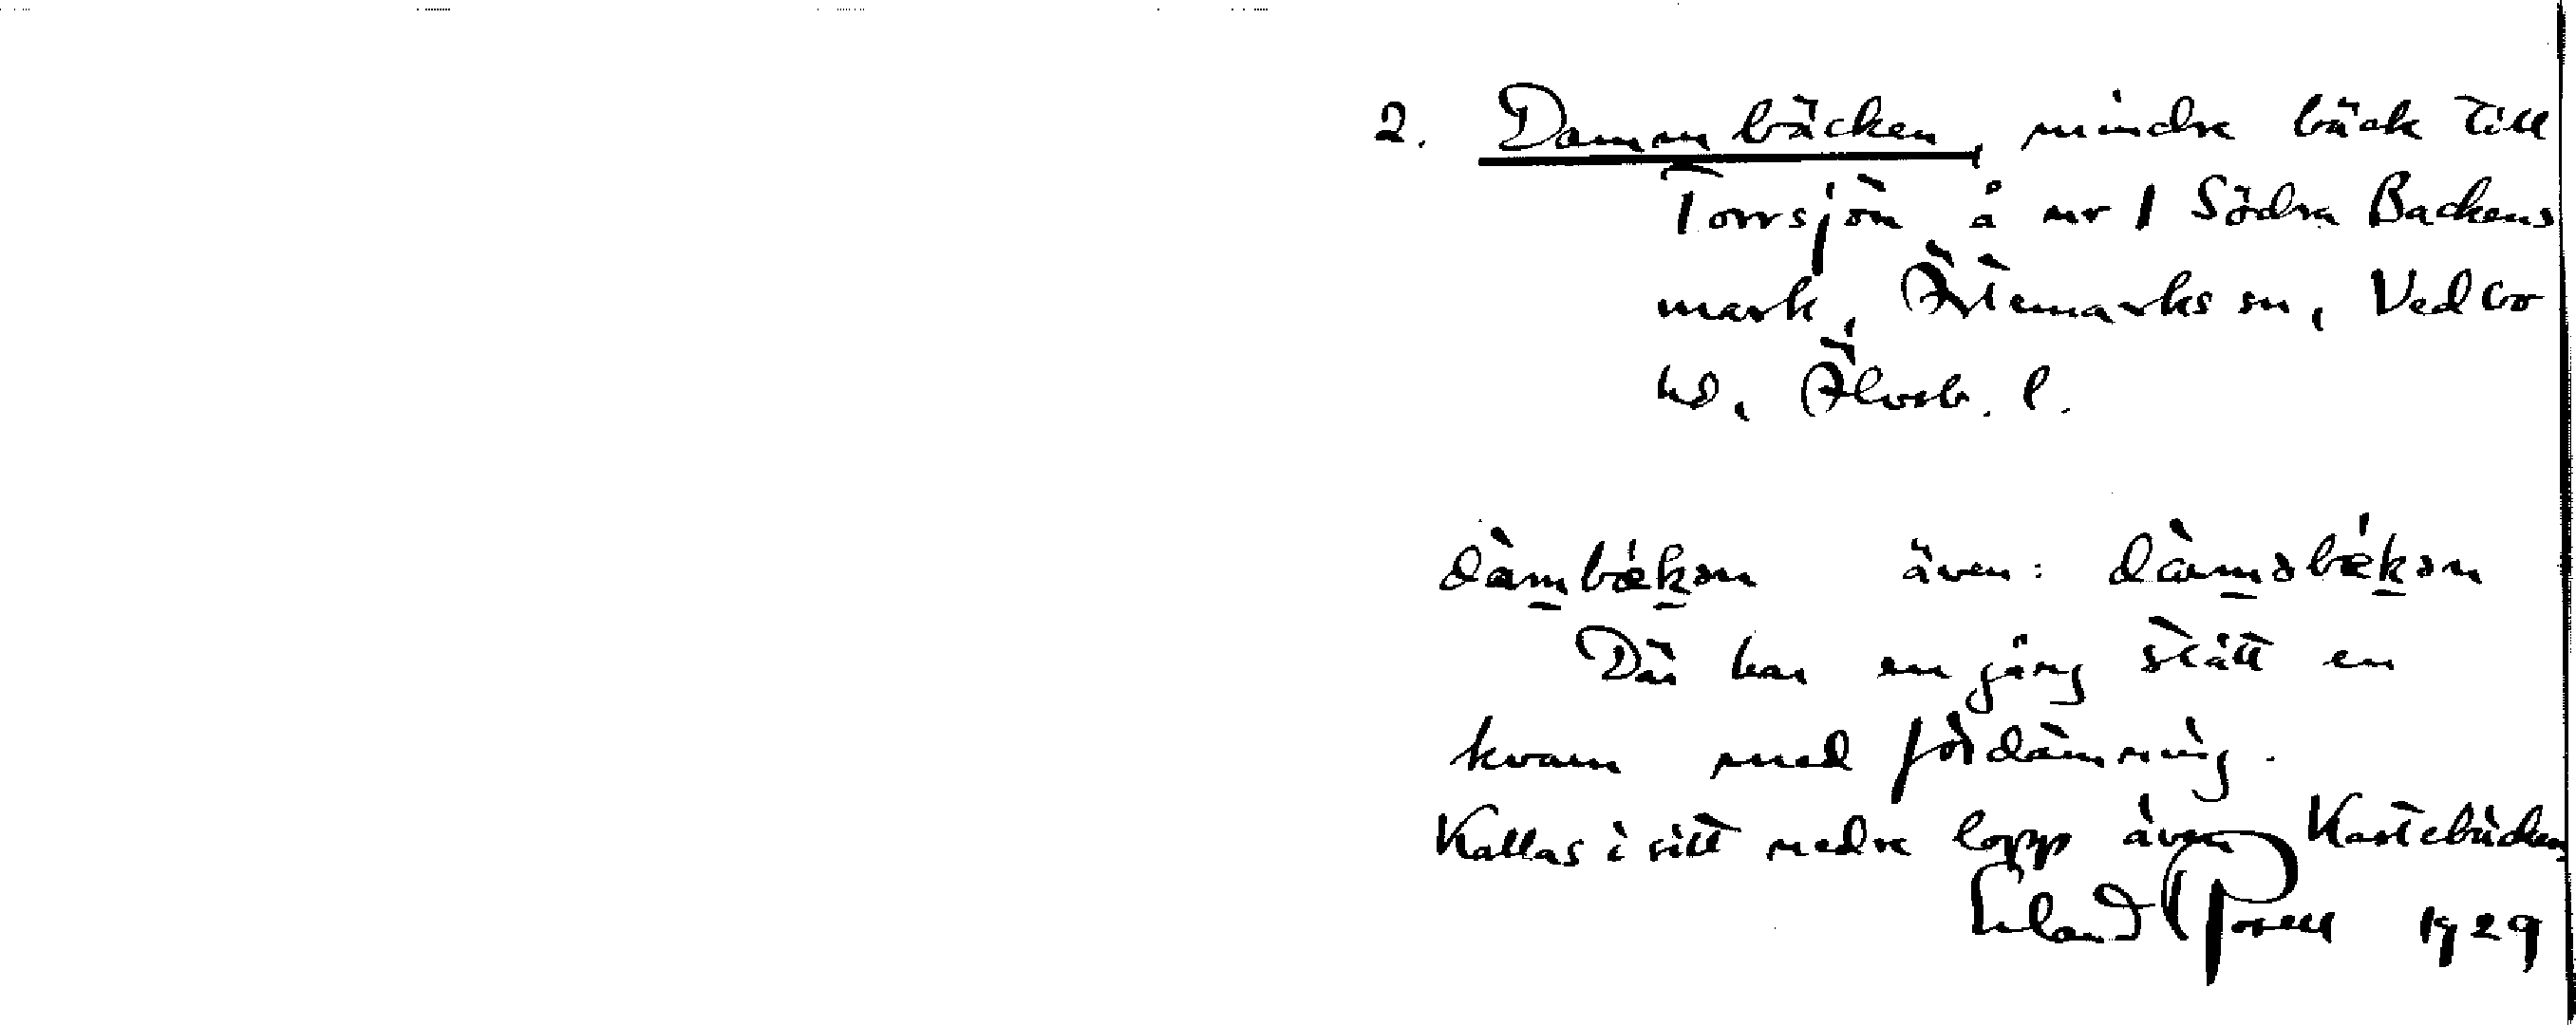 2. Dammbäcken, mindre bäck till
Torrsjön å nr 1 Södra Backens
mark, Ärtemarks sn, Vedbo
hd, Älvsb. l.
dàmbǽkən även: dàməbǽkən
Där har en gång stått en
kvarn med fördämning.
Kallas i sitt nedre lopp även Kastebäcken
Erland Rosell 1929